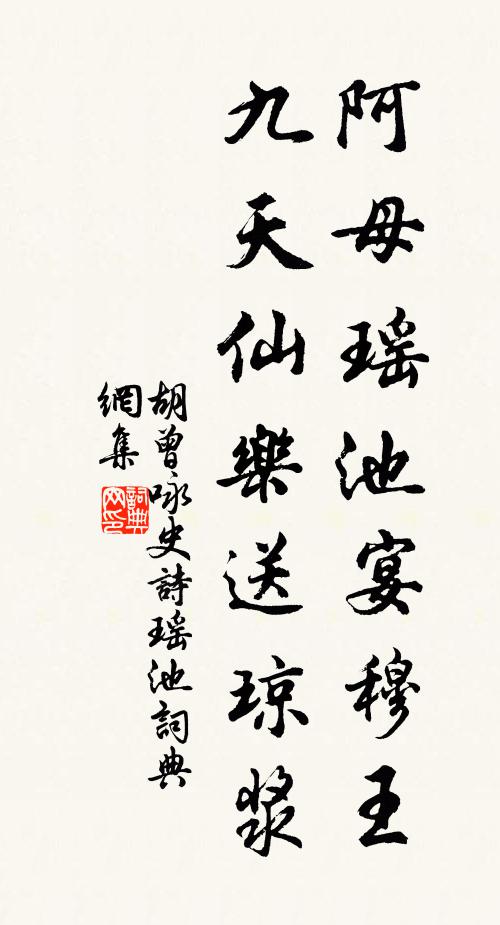 阿母瑶池宴穆王
九天仙樂送琼漿
胡曾咏史詩瑶池詞典
網集
詞典
网印